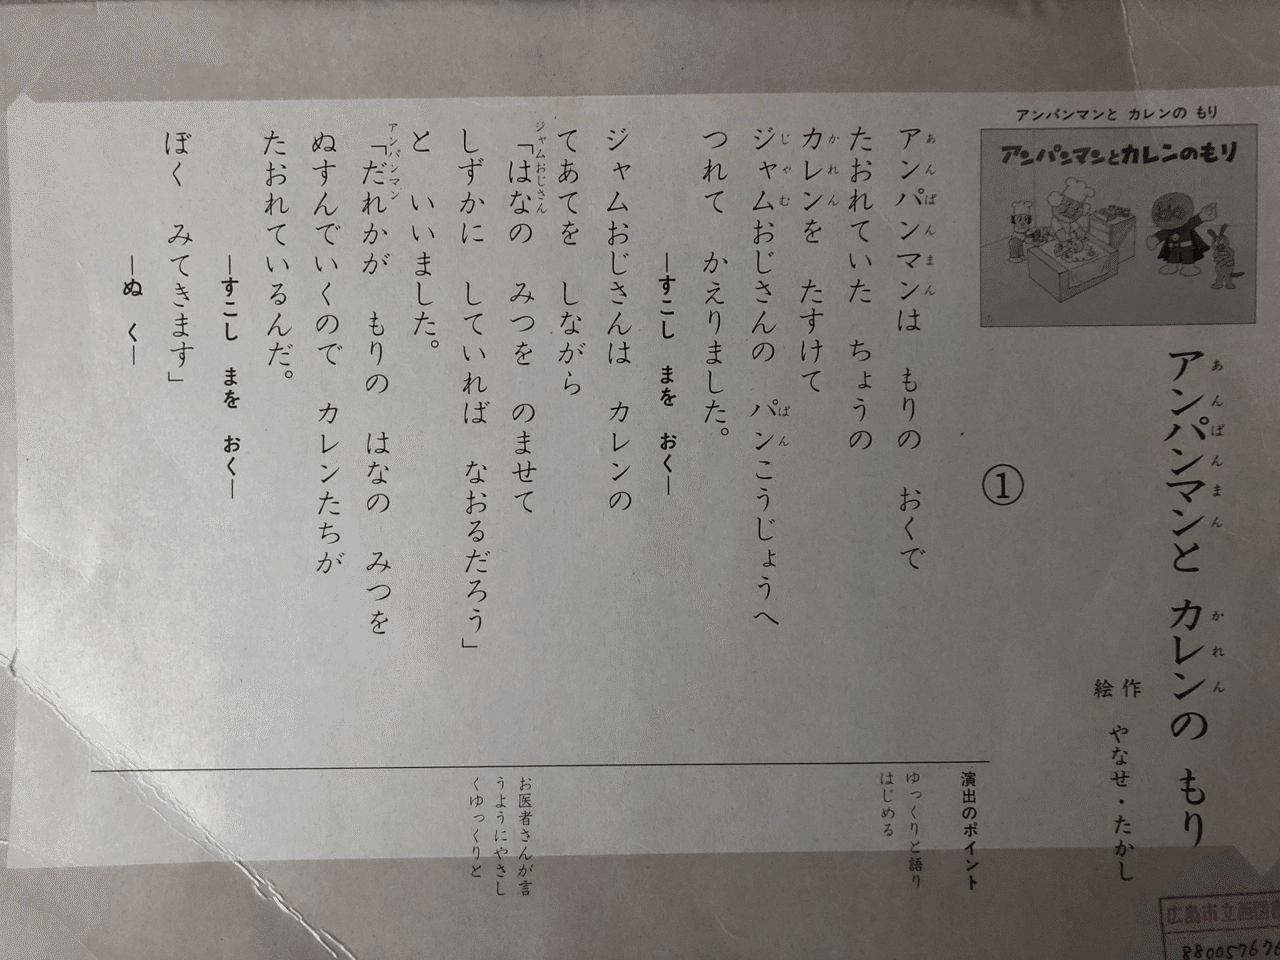 アンパンマンと カレンの もり
アンパンマンとカレンのもり
アンパンマンと カレンの もり
作
絵 やなせ・たかし
①
アンパンマンは もりの おくで
たおれていた ちょうの
カレンを たすけて
ジャムおじさんの パンこうじょうへ
つれて かえりました。
―すこし まを おく―
ジャムおじさんは カレンの
てあてを しながら
ジャムおじさん
「はなの みつを のませて
しずかに していれば なおるだろう」
と いいました。
アンパンマン
「だれかが もりの はなの みつを
ぬすんでいくので カレンたちが
たおれているんだ。
―すこし まを おく―
ぼく みてきます」
―ぬ く―
演出のポイント
ゆっくりと語り
はじめる
お医者さんが言
うようにやさし
くゆっくりと
広島市立西図
880057676